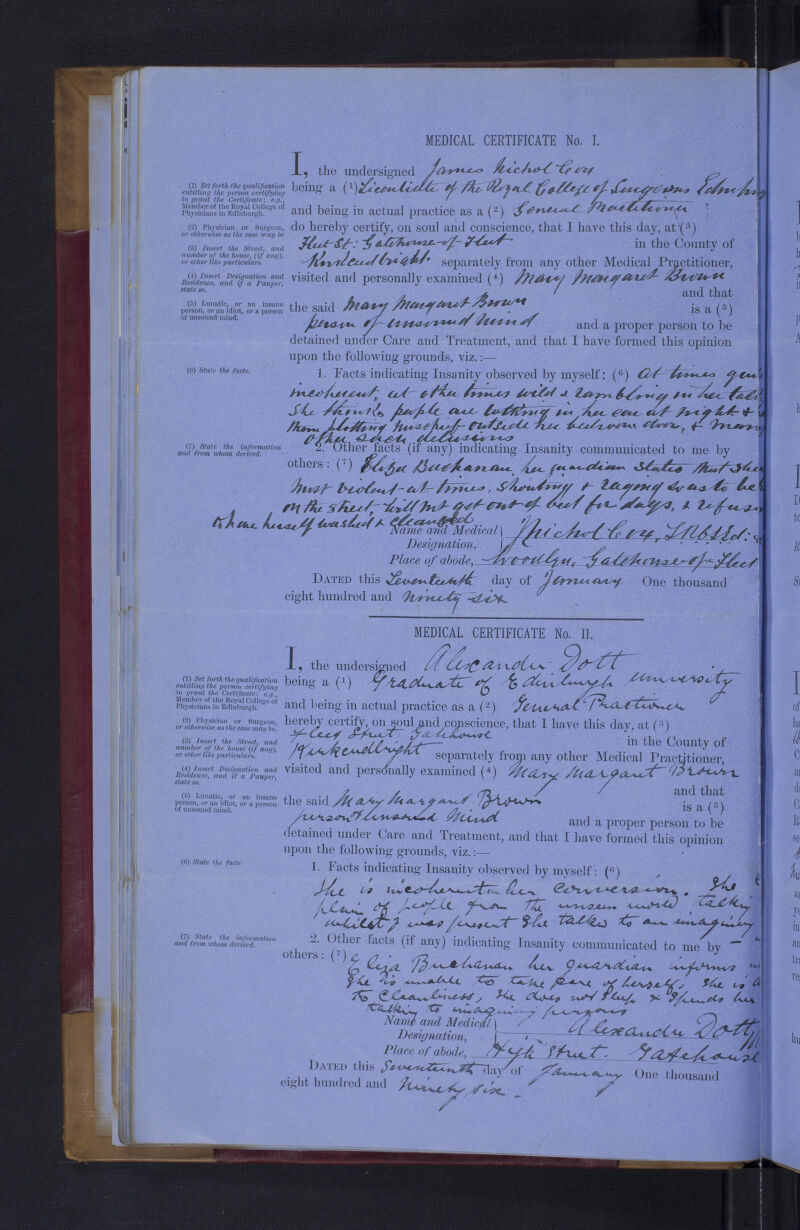 MEDICAL CERTIFICATE No. I.
I, the undersigned James Nichol Cox
(1) Set forth the qualification
entitling the person certifying
to grant the Certificate: e.g.,
Member of the Royal College of
Physicians in Edinburgh.
being a (1) Licentiate of the Royal College of Surgeons
and being in actual practice as a (2) General Practitioner
(2) Physician or Surgeon,
or otherwise as the case may be
do hereby certify, on soul and conscience, that I have this day, at (3)
(3) Insert the Street, and
number of the house, (if any),
or other like particulars.
Fleet St: Gatehouse-of-Fleet in the County of
Kirkcudbright separately from any other Medical Practitioner,
(4) Insert Designation and
Residence, and if a Pauper,
state so.
visited and personally examined (4) Mary Margaret Brown
and that
(5) Lunatic, or an insane
person, or an idiot, or a person
of unsound mind.
the said Mary Margaret Brown is a (5)
person of unsound mind and a proper person to be
detained under Care and Treatment, and that I have formed this opinion
upon the following grounds, viz.:—
(6) State the facts.
1. Facts indicating Insanity observed by myself: (6) At times
incoherent, at other times wild & rambling in her
She thinks people are talking in her ear at night &
them plotting mischief outside her bedroom door, &
other such delusions
(7) State the information
and from whom derived.
2. Other facts (if any) indicating Insanity communicated to me by
others: (7) Eliza Buchanan, her guardian states that she
most violent at times, shouting & raging so as to be
on the street, will not get out of bed for days, &
to have herself washed & cleansed
Name and Medical J Nichol Cox, LRCSEd:
Designation,
Place of abode, Woodlyn, Gatehouse-of-Fleet
DATED this Seventeenth day of January One thousand
eight hundred and ninety six
MEDICAL CERTIFICATE No. II.
I, the undersigned Alexander Dott
(1) Set forth the qualification
entitling the person certifying
to grant the Certificate: e.g.,
Member of the Royal College of
Physicians in Edinburgh.
being a (1) Graduate of Edinburgh University
and being in actual practice as a (2) General Practitioner
(2) Physician or Surgeon,
or otherwise as the case may be.
hereby certify, on soul and conscience, that I have this day, at (3)
(3) Insert the Street, and
number of the house (if any),
or other like particulars.
Fleet Street Gatehouse in the County of
Kirkcudbright separately from any other Medical Practitioner,
(4) Insert Designation and
Residence, and if a Pauper,
state so.
visited and personally examined (4) Mary Margaret Brown
and that
(5) Lunatic, or an insane
person, or an idiot, or a person
of unsound mind.
the said Mary Margaret Brown is a (5)
person of unsound mind and a proper person to be
detained under Care and Treatment, and that I have formed this opinion
upon the following grounds, viz.:—
(6) State the facts
1. Facts indicating Insanity observed by myself: (6)
She is incoherent in her conversion. She
plain of people from the unseen world talking
whilst I was present She talked to an imaginary
(7) State the information
and from whom derived.
2. Other facts (if any) indicating Insanity communicated to me by
others: (7) Eliza Buchanan her guardian informs
She is unable to take care of herself, She is
to cleanliness, She does not sleep & Spends her
talking to imaginary persons
Name and Medical Alexander Dott
Designation,
Place of abode, High Street. Gatehouse
DATED this Seventeenth day of January One thousand
eight hundred and Ninety six